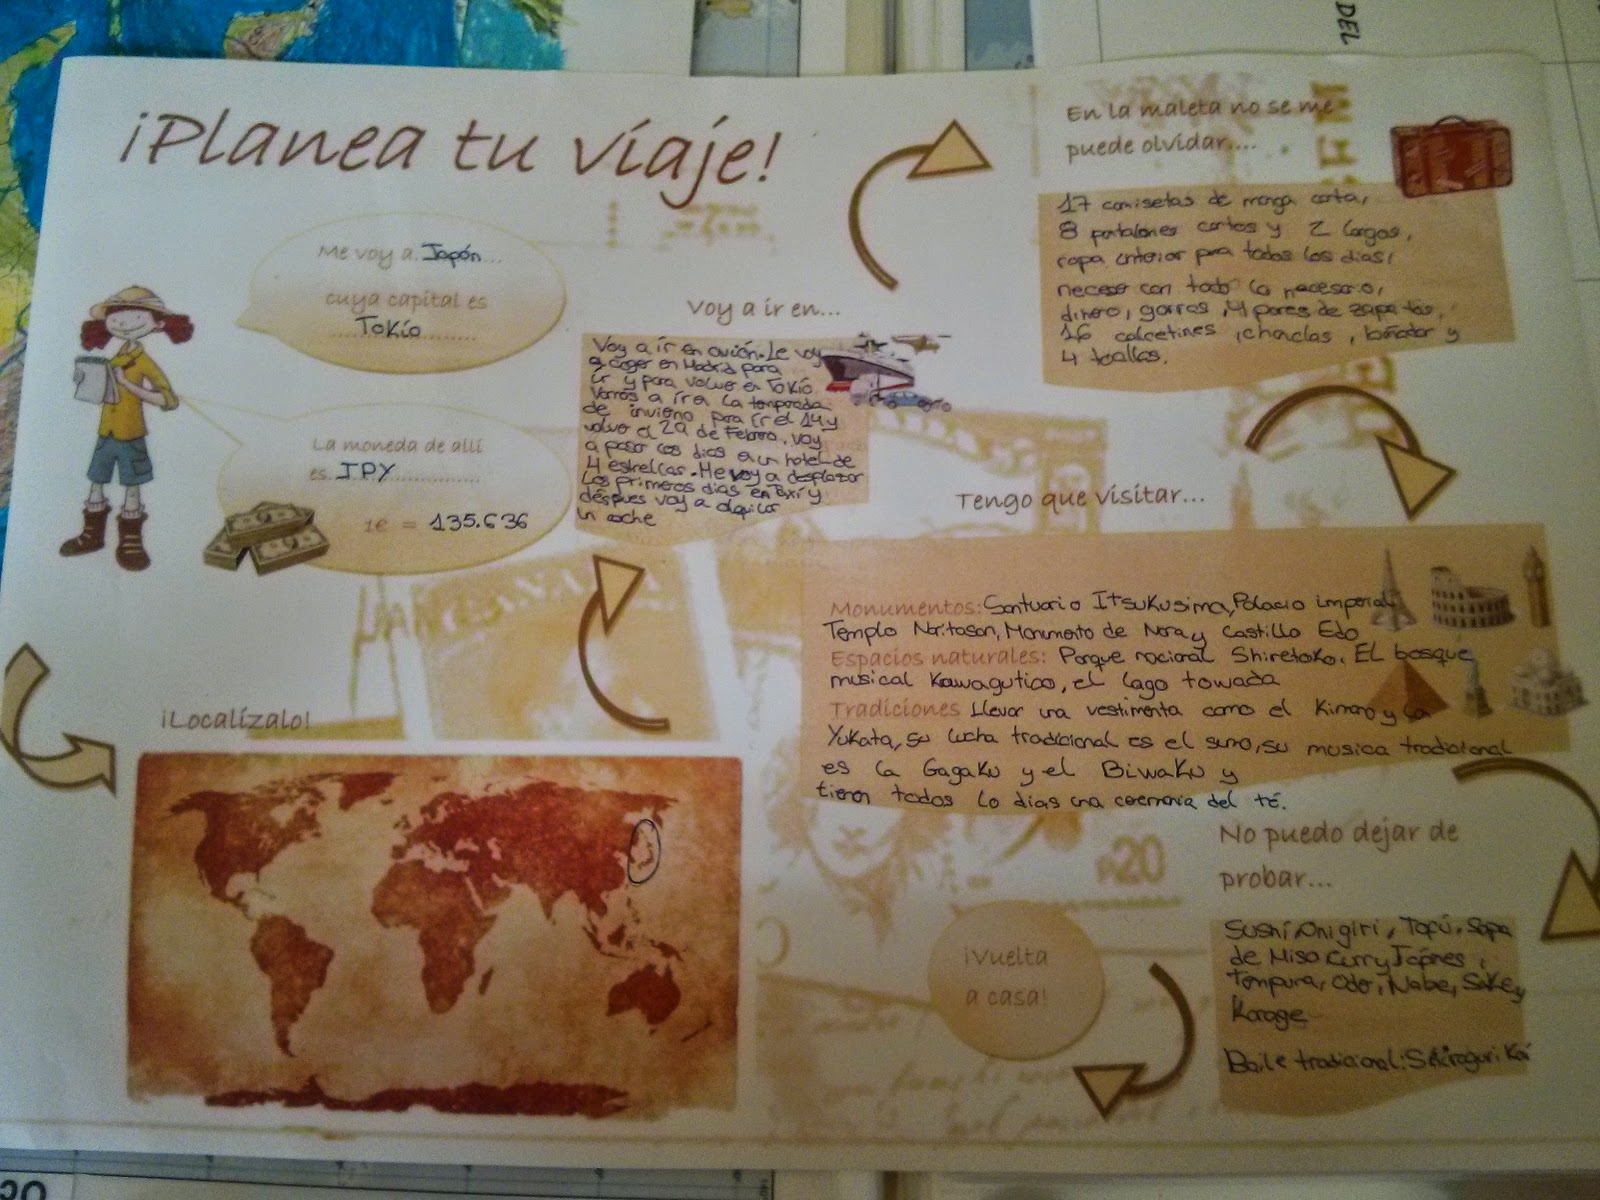 ¡Planea tu viaje!
Me voy a Japón...
cuya capital es
Tokío
La moneda de allí
es JPY
1€ = 135.636
¡Localízalo!
Voy a ir en...
Voy a ir en avión. Le voy
a coger en Madrid para
ir y para volver en Tokío
Vamos a ir en la temporada
de invierno para ir el 14 y
volver el 29 de Febrero. voy
a pasar los dias en un hotel de
4 estrellas. Me voy a desplazar
los primeros dias en taxi y
déspues voy a alquilar
un coche
En la maleta no se me
puede olvidar....
17 camisetas de manga corta,
8 pantalones cortos y 2 largos,
ropa interior para todos los dias,
neceser con todo lo necesario,
dinero, gorras, 4 pares de zapatos,
16 calcetines, chanclas, bañador y
4 toallas.
Tengo que visitar...
Monumentos: Santuario Itsukusima, Palacio imperial
Templo Naritasan, Monumento de Nara y Castillo Edo
Espacios naturales: Parque nacional Shiretoko. El bosque
musical Kawagutico, el lago towada
Tradiciones Llevar una vestimenta como el Kimono y la
Yukata, su lucha tradicional es el sumo, su musica tradicional
es la Gagaku y el Biwaku y
tienen todos lo dias una ceremonia del té.
No puedo dejar de
probar...
Sushi, Onigiri, Tofú, Sopa
de Miso Curry Japones,
tempura, Oden, Nabe, Sake y
Karage
Baile tradicional:
¡Vuelta
a casa!
DEL
R20